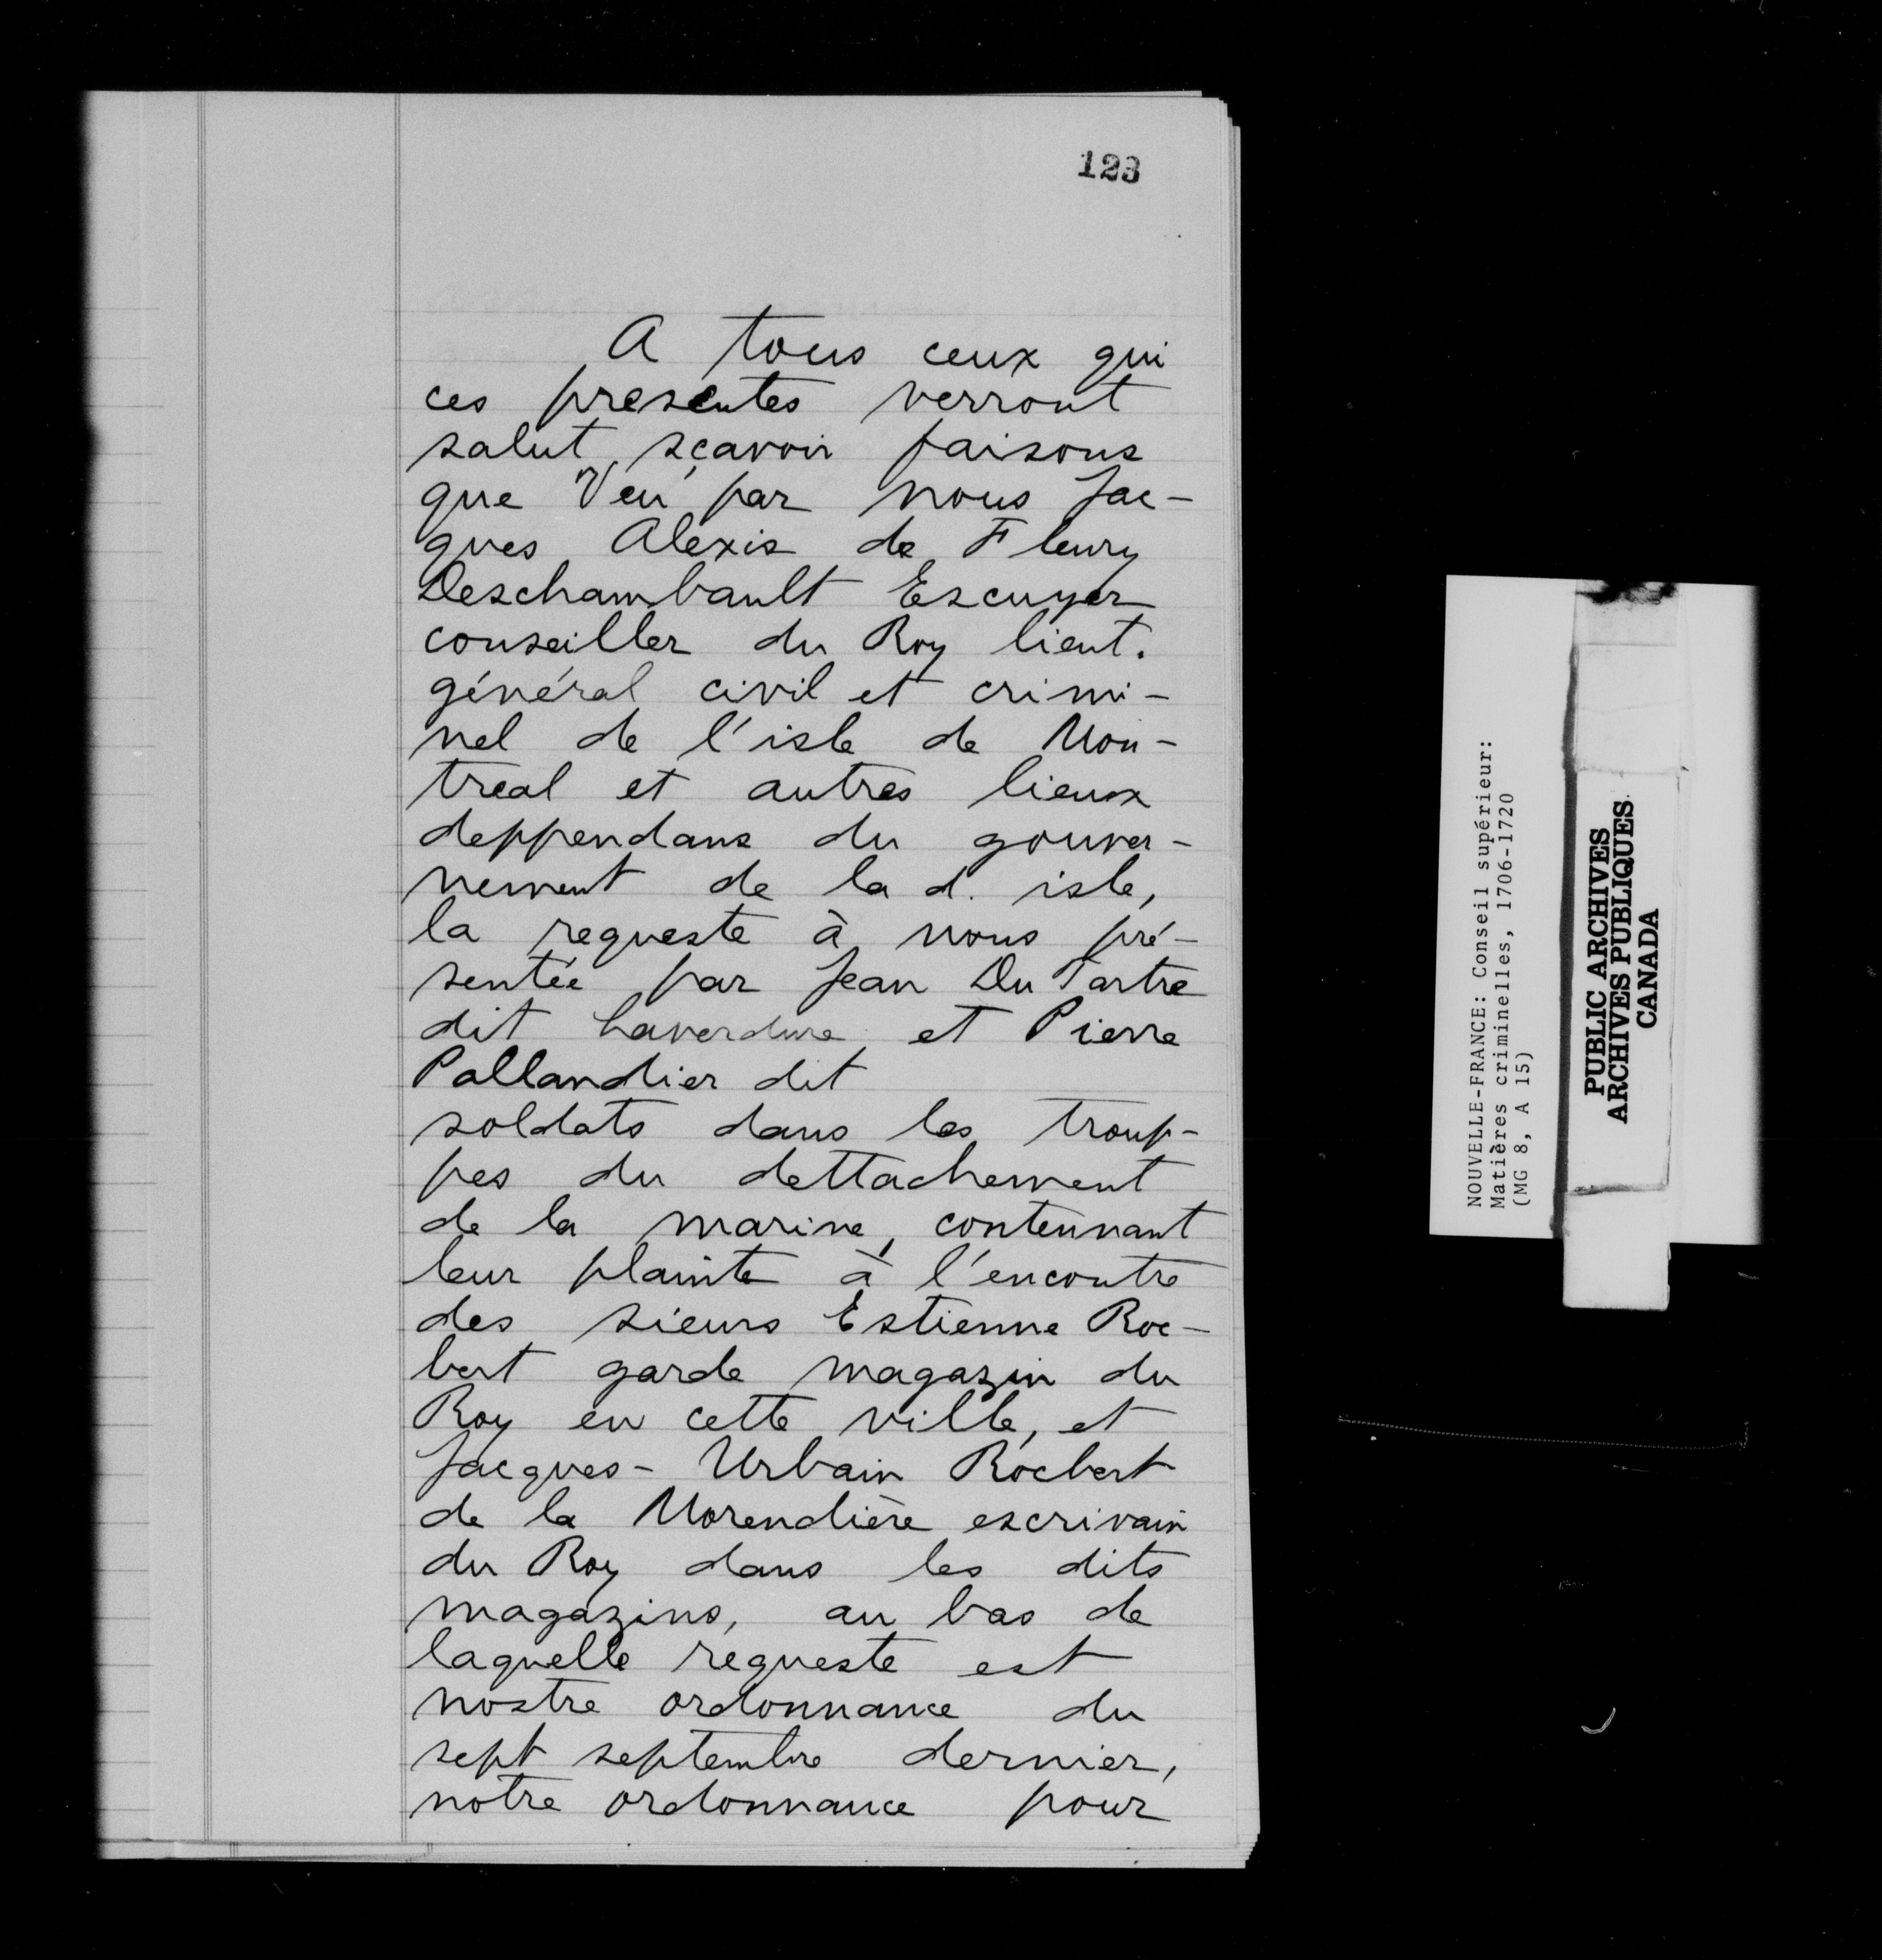 123
A tous ceux qui
ces presentes verront
salut, sçavoir faisons
que Veu par nous Jac-
ques Alexis de Fleury
Deschambault Escuyer
conseiller du Roy lieut.
général civil et crimi-
nel de l'isle de Mon-
treal et autres lieux
deppendans du gouver-
nement de la d. isle,
la requeste à nous pré-
sentée par Jean Du Tartre
dit Laverdure et Pierre
Pallandier dit
soldats dans les troup-
pes du dettachement
de la marine, contennant
leur plainte à l'encontre
des sieurs Estienne Roc-
bert garde magazin du
Roy en cette ville, et
Jacques-Urbain Rocbert
de la Morendière escrivain
du Roy dans les dits
magazins, au bas de
laquelle requeste est
nostre ordonnance du
sept septembre dernier,
notre ordonnance pour
NOUVELLE-FRANCE: Conseil supérieur:
Matières criminelles, 1706-1720
(MG 8, A 15)
PUBLIC ARCHIVES
ARCHIVES PUBLIQUES
CANADA